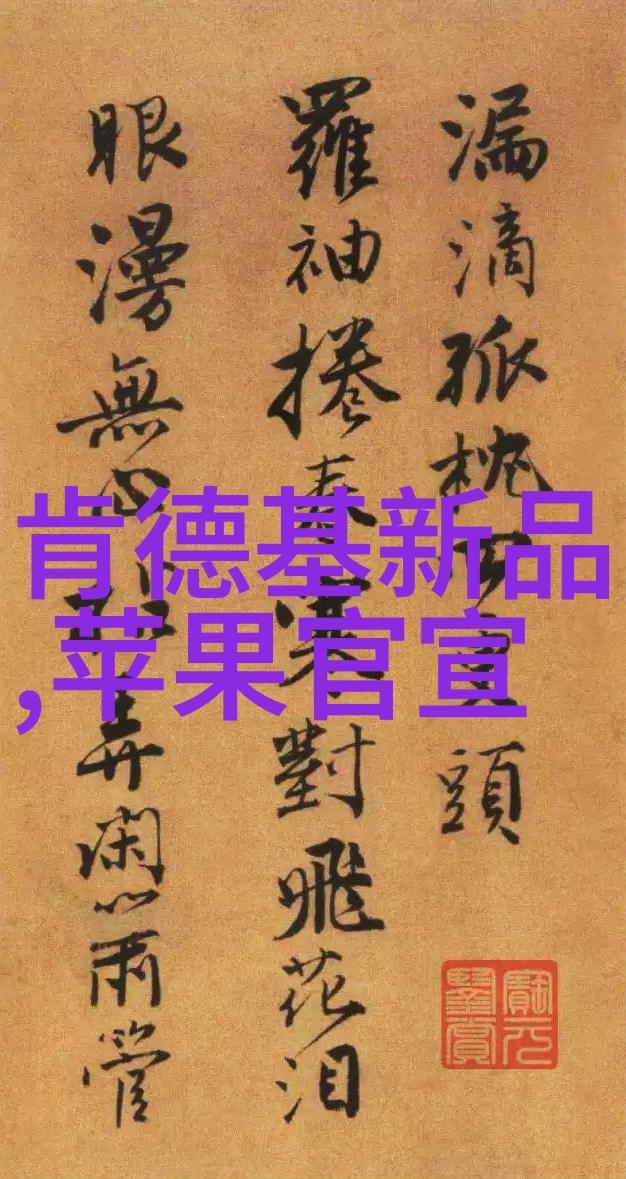 漏滴孤枕頭
羅袖捲春寒對飛花泪
眼漫無心弄閑管
肯德基新品
,苹果官宣